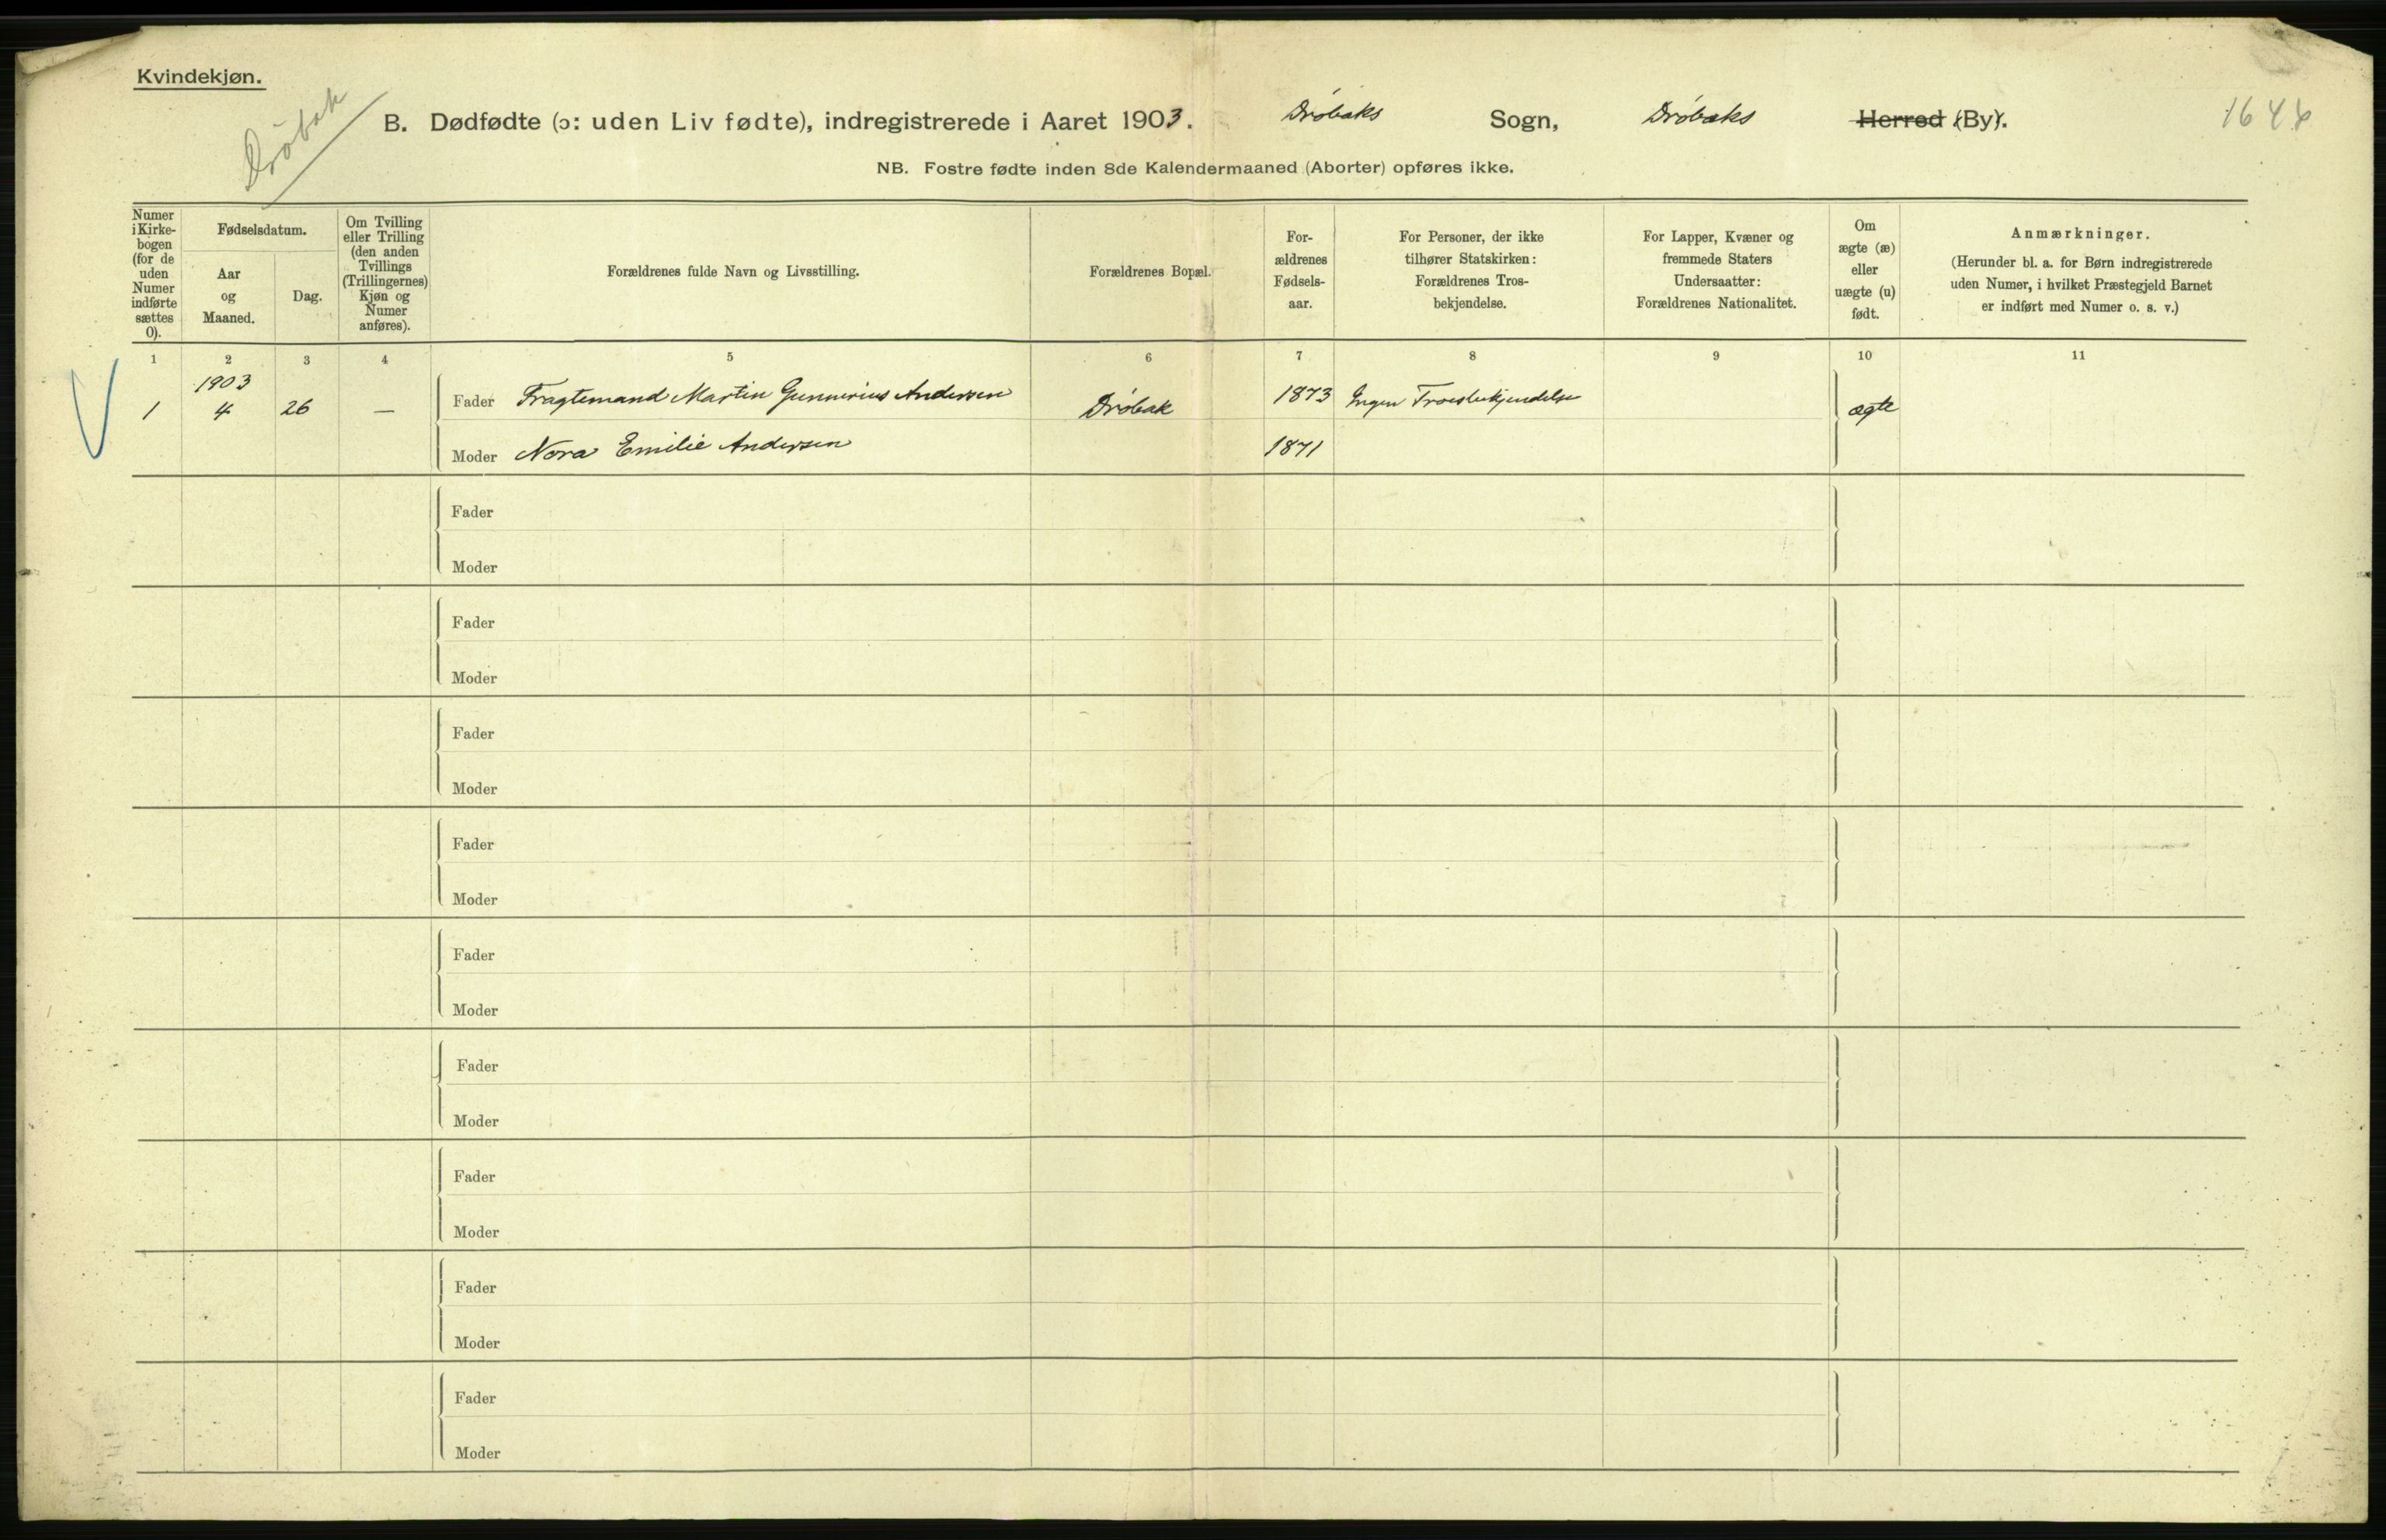 Kvindekjøn.
Drøbak
B. Dødfødte (ɔ: uden Liv fødte), indregistrerede i Aaret 1903. Drøbaks Sogn, Drøbaks Herred (By).
NB. Fostre fødte inden 8de Kalendermaaned (Aborter) opføres ikke.
Numer i Kirke-bogen (for de uden Numer indførte sættes 0).
Fødselsdatum.
Aar og Maaned.
Dag.
Om Tvilling eller Trilling (den anden Tvillings (Trillingernes) Kjøn og Numer anføres).
Forældrenes fulde Navn og Livsstilling.
Forældrenes Bopæl.
For-ældrenes Fødsels-aar.
For Personer, der ikke tilhører Statskirken: Forældrenes Tros-bekjendelse.
For Lapper, Kvæner og fremmede Staters Undersaatter: Forældrenes Nationalitet.
Om ægte (æ) eller uægte (u) født.
Anmærkninger.
(Herunder bl. a. for Børn indregistrerede uden Numer, i hvilket Præstegjeld Barnet er indført med Numer o. s. v.)
1 2 3 4 5 6 7 8 9 10 11
1903
1 4 26 — Fader Fragtemand Martin Gunnerius Andersen Drøbak 1873 Ingen Troesbekjendelse ægte
Moder Nora Emilie Andersen 1871
Fader
Moder
Fader
Moder
Fader
Moder
Fader
Moder
Fader
Moder
Fader
Moder
Fader
Moder
Fader
Moder
Fader
Moder